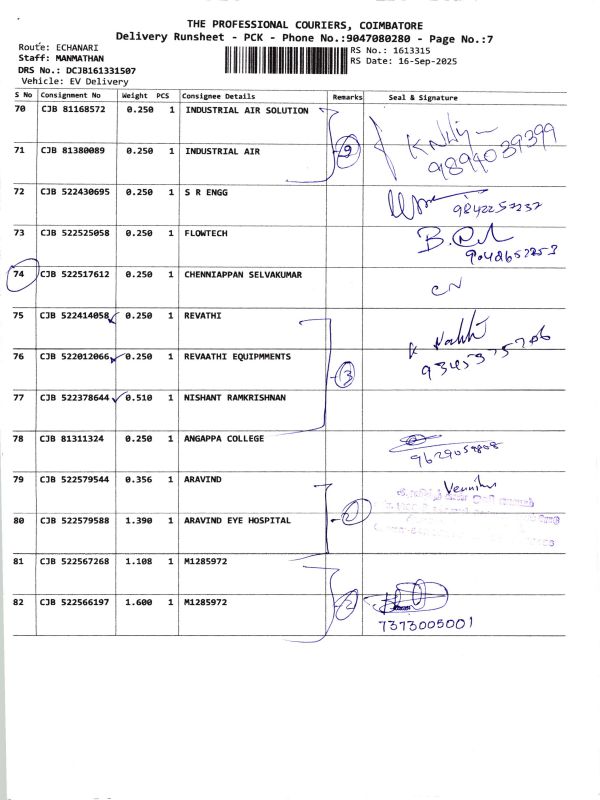 THE PROFESSIONAL COURIERS, COIMBATORE
Delivery Runsheet - PCK - Phone No.:9047080280 - Page No.:7
Route: ECHANARI
RS No.: 1613315
Staff: MANMATHAN
RS Date: 16-Sep-2025
DRS No.: DCJB161331507
Vehicle: EV Delivery
S No Consignment No Weight PCS Consignee Details Remarks Seal & Signature
70 CJB 81168572 0.250 1 INDUSTRIAL AIR SOLUTION
71 CJB 81380089 0.250 1 INDUSTRIAL AIR
9894039399
72 CJB 522430695 0.250 1 S R ENGG
9842257237
73 CJB 522525058 0.250 1 FLOWTECH
74 CJB 522517612 0.250 1 CHENNIAPPAN SELVAKUMAR
CN
75 CJB 522414058 0.250 1 REVATHI
76 CJB 522012066 0.250 1 REVAATHI EQUIPMMENTS 3
77 CJB 522378644 0.510 1 NISHANT RAMKRISHNAN
78 CJB 81311324 0.250 1 ANGAPPA COLLEGE
79 CJB 522579544 0.356 1 ARAVIND
80 CJB 522579588 1.390 1 ARAVIND EYE HOSPITAL 2
81 CJB 522567268 1.108 1 M1285972
82 CJB 522566197 1.600 1 M1285972 2
7373005001